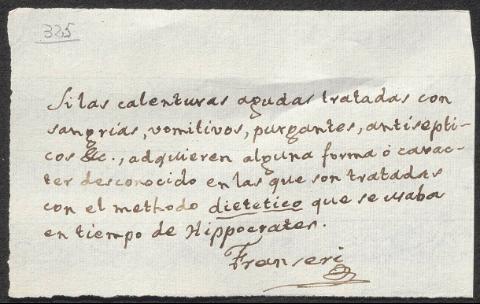 335
Si las calenturas agudas tratadas con
sangrias, vomitivos, purgantes, antisepti-
cos &c., adquieren alguna forma ó carac-
ter desconocido en las que son tratadas
con el methodo dietetico que se usaba
en tiempo de Hippocrates.
Franseri